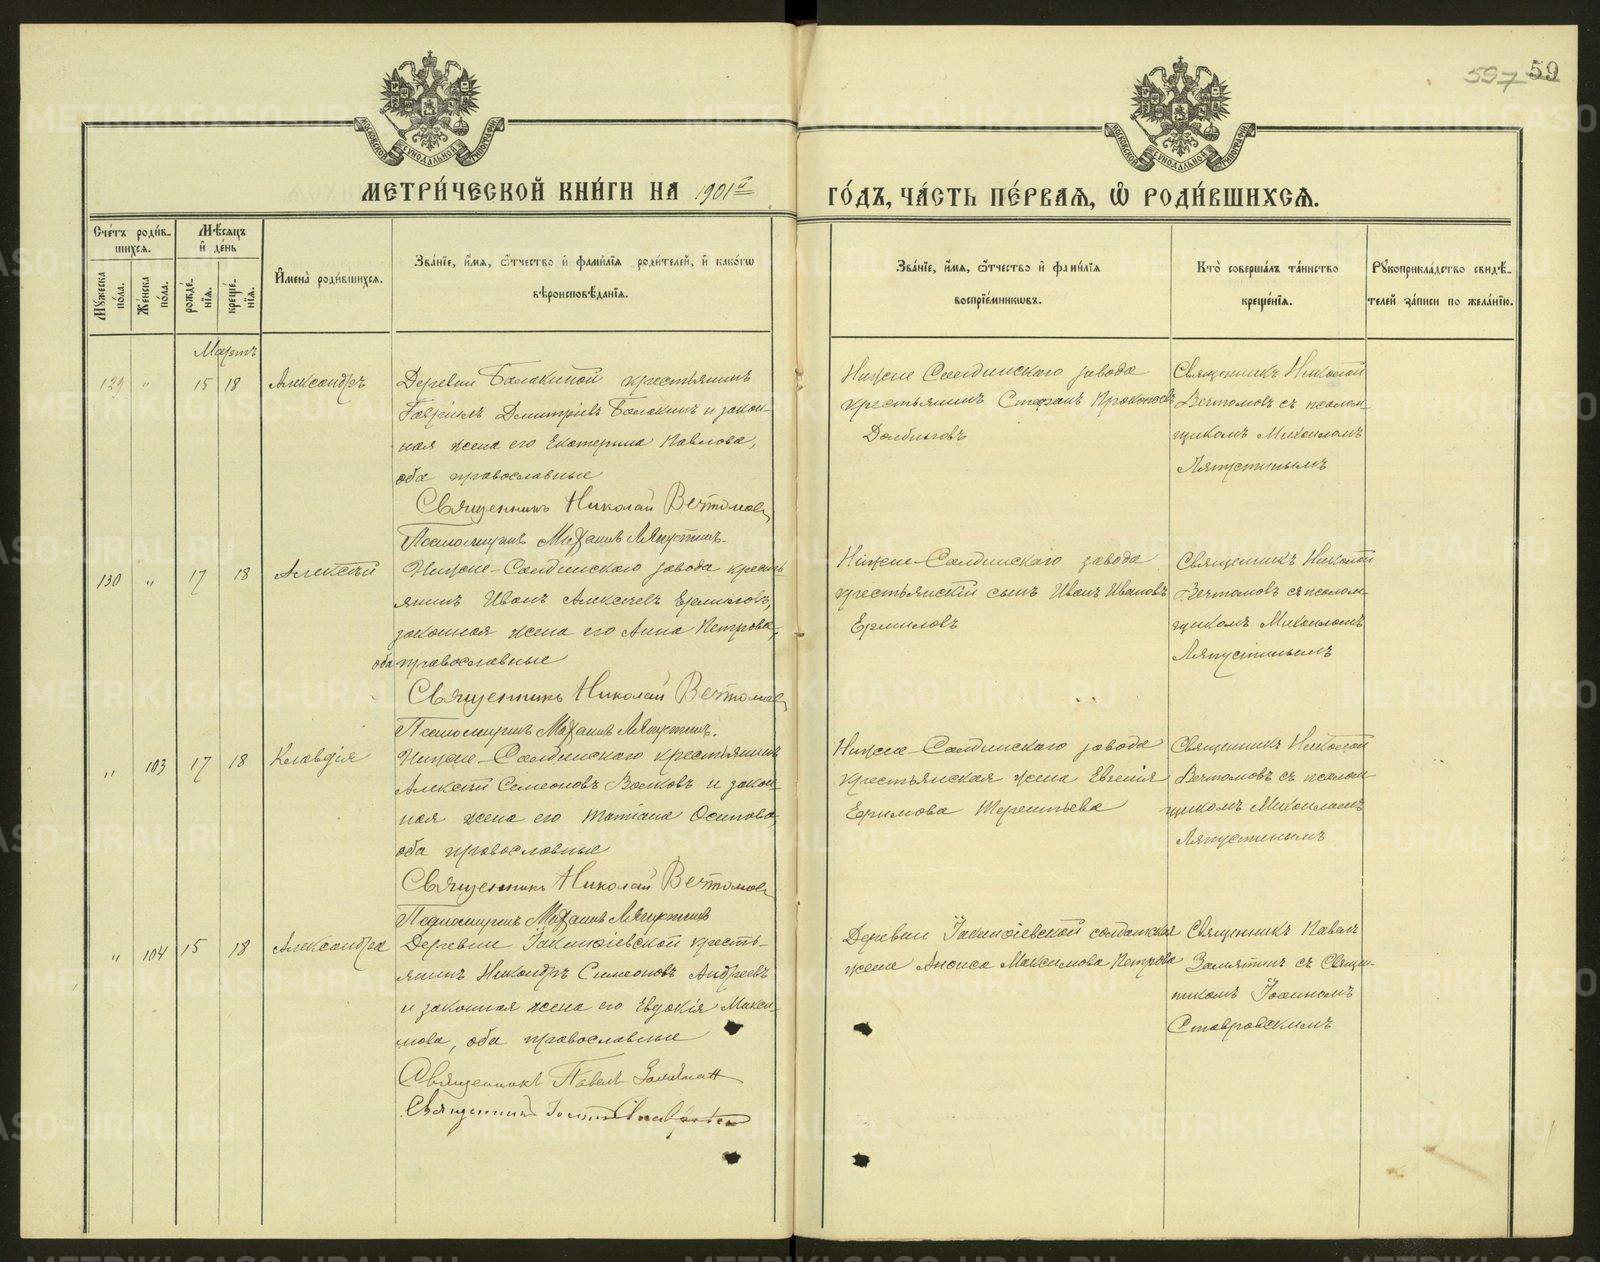 597 59
МЕТРИ́ЧЕСКОЙ КНИ́ГИ НА 1901й ГО́ДЪ, ЧА́СТЬ ПЕ́РВАѦ, Ѿ РОДИ́ВШИХСѦ.
Сче́тъ роди́вшихсѧ.
Мꙋжеска по́ла.
Же́нска по́ла.
Мѣ́сѧцъ и҆ де́нь
рожде́нїѧ.
креще́нїѧ.
И҆мена̀ роди́вшихсѧ.
Зва́нїе, и҆́мѧ, ѻ҆́тчество и҆ фами́лїѧ роди́телей, и҆ како́гѡ
вѣроисповѣ́данїѧ.
Зва́нїе, и҆́мѧ, ѻ҆́тчество и҆ фами́лїѧ
воспрїе́мникѡвъ.
Кто̀ соверша́лъ та́инство
креще́нїѧ.
Рꙋкоприкла́дство свидѣ́-
телей за́писи по жела́нїю.
Мартъ
129 " 15 18 Александръ
Деревни Балакиной крестьянинъ
Гавріилъ Димитріевъ Балакинъ и закон-
ная жена его Екатерина Павлова,
оба православные
Священникъ Николай Вечтомовъ
Псаломщикъ Михаилъ Ляпустинъ.
Нижне Салдинскаго завода
крестьянинъ Стефанъ Прокопьевъ
Долбиловъ
Священникъ Николай
Вечтомовъ съ псалом-
щикомъ Михаиломъ
Ляпустинымъ
130 " 17 18 Алексѣй
Нижне-Салдинскаго завода кресть-
янинъ Иванъ Алексѣевъ Ермиловъ,
законная жена его Анна Петрова,
оба православные
Священникъ Николай Вечтомовъ
Псаломщикъ Михаилъ Ляпустинъ.
Нижне-Салдинскаго завода
крестьянскій сынъ Иванъ Ивановъ
Ермиловъ
Священникъ Николай
Вечтомовъ съ псалом-
щикомъ Михаиломъ
Ляпустинымъ
" 103 17 18 Клавдія
Нижне-Салдинскаго крестьянинъ
Алексѣй Семеоновъ Волковъ и закон-
ная жена его Татіана Осипова,
оба православные
Священникъ Николай Вечтомовъ
Псаломщикъ Михаилъ Ляпустинъ
Нижне-Салдинскаго завода
крестьянская жена Евгенія
Терентьева
Священникъ Николай
Вечтомовъ съ псалом-
щикомъ Михаиломъ
Ляпустинымъ
" 104 15 18 Александра
Деревни Іакинѳіевской кресть-
янинъ Никандръ Симеоновъ Андреевъ
и законная жена его Евдокія Макси-
мова, оба православные
Священникъ Павелъ Замятин
Священникъ Іоаннъ Ставровскій
Деревни Іакинѳіевской солдатская
жена Анѳиса Максимова Петрова
Священникъ Павелъ
Замятинъ съ Священ-
никомъ Іоанномъ
Ставровскимъ
METRIKI.GASO-URAL.RU